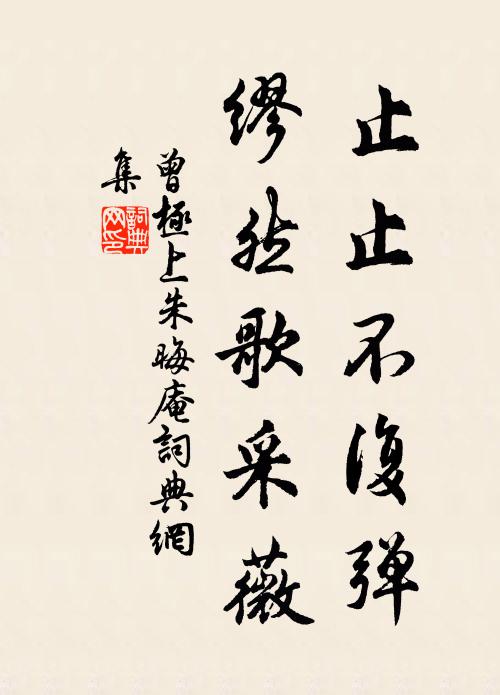 止止不復弹
繆然歌采薇
曾極上朱晦庵詞典網
集
詞典
网印